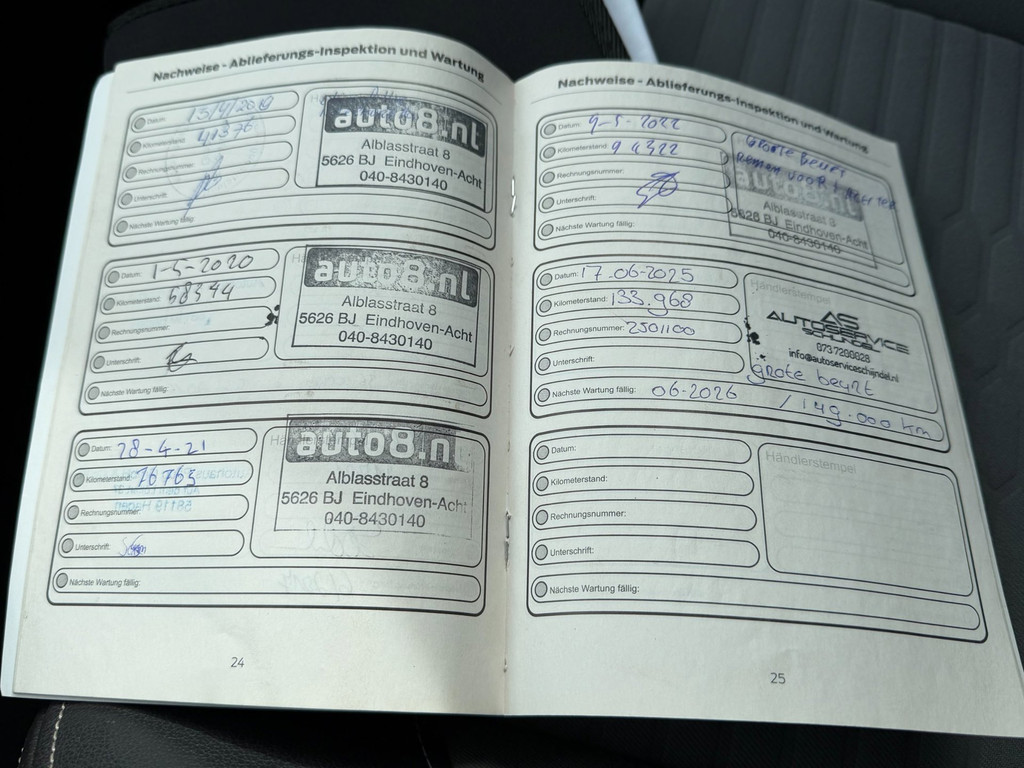 Nachweise - Ablieferungs-Inspektion und Wartung
Datum: 13/4/2019
Kilometerstand: 41376
Rechnungsnummer:
Unterschrift:
Nächste Wartung fällig:
auto8.nl
Alblasstraat 8
5626 BJ Eindhoven-Acht
040-8430140
Datum: 1-5-2020
Kilometerstand: 58344
Rechnungsnummer:
Unterschrift:
Nächste Wartung fällig:
auto8.nl
Alblasstraat 8
5626 BJ Eindhoven-Acht
040-8430140
Datum: 28-4-21
Kilometerstand: 76765
Rechnungsnummer:
Unterschrift:
Nächste Wartung fällig:
auto8.nl
Alblasstraat 8
5626 BJ Eindhoven-Acht
040-8430140
24
Nachweise - Ablieferungs-Inspektion und Wartung
Datum: 9-5-2022
Kilometerstand: 94322
Rechnungsnummer:
Unterschrift:
Nächste Wartung fällig:
Grote Beurt
Remmen voor +
auto8.nl
Alblasstraat 8
5626 BJ Eindhoven-Acht
040-8430140
Datum: 17-06-2025
Kilometerstand: 133.968
Rechnungsnummer: 2501100
Unterschrift:
Nächste Wartung fällig: 06-2026 / 149.000 km
Händlerstempel
AS
AUTOSERVICE
SCHIJNDEL
073 7200028
info@autoserviceschijndel.nl
grote beurt
Datum:
Kilometerstand:
Rechnungsnummer:
Unterschrift:
Nächste Wartung fällig:
Händlerstempel
25